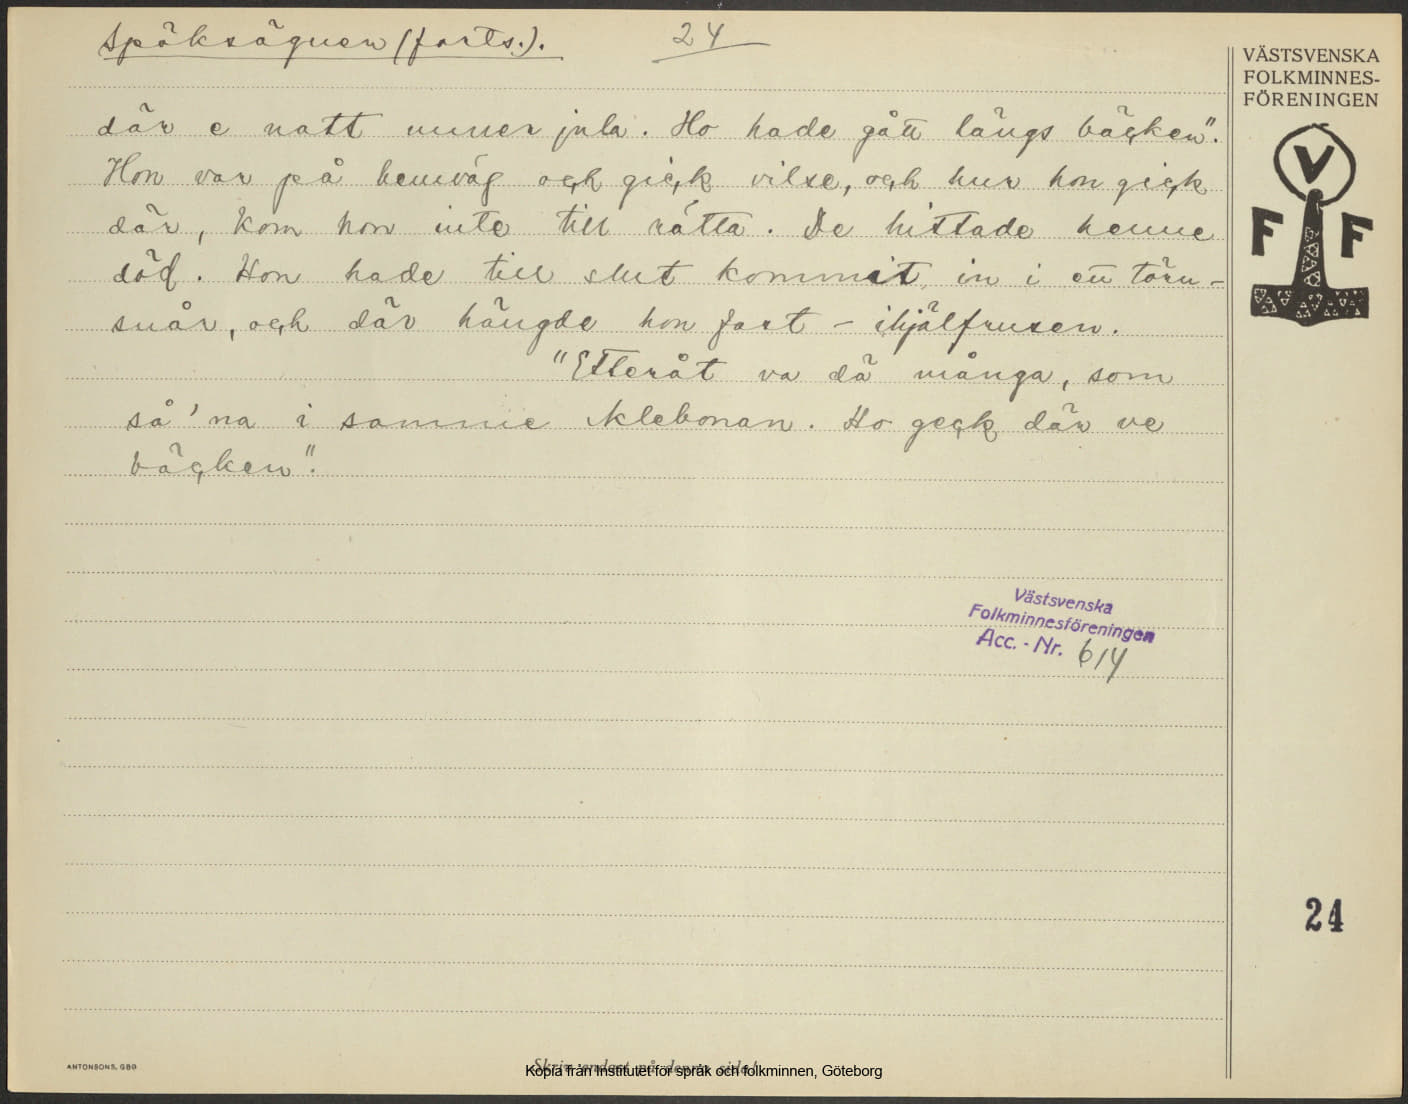 Spöksägner (forts.). 24
där e natt unner jula. Ho hade gått längs bäcken".
Hon var på hemväg och gick vilse, och hur hon gick
där, kom hon inte till rätta. De hittade henne
död. Hon hade till slut kommit in i en törn-
snår, och där hängde hon fast – ihjälfrusen.
"Etteråt va dä många, som
så 'na i samme Klebonan. Ho geck där ve
bäcken".
VÄSTSVENSKA
FOLKMINNES-
FÖRENINGEN
V
F F
Västsvenska
Folkminnesföreningen
Acc. - Nr. 614
24
ANTONSONS, GBG
Skriv endast på denna sida!
Kopia från Institutet för språk och folkminnen, Göteborg